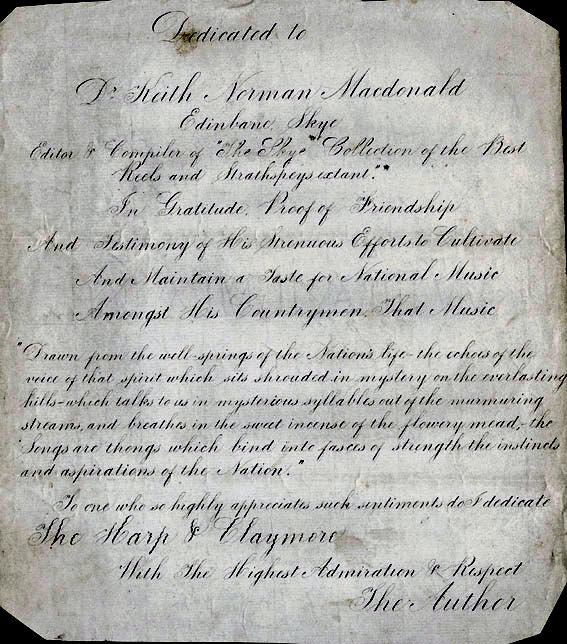 Dedicated to
Dr Keith Norman Macdonald
Edinbane, Skye
Editor & Compiler of "The Skye" Collection of the Best
Reels and Strathspeys extant."
In Gratitude, Proof of Friendship
And Testimony of His Strenuous Efforts to Cultivate
And Maintain a Taste for National Music
Amongst His Countrymen, That Music
"Drawn from the well-springs of the Nation's life—the echoes of the
voice of that spirit which sits shrouded in mystery on the everlasting
hills—which talks to us in mysterious syllables out of the murmuring
streams, and breathes in the sweet incense of the flowery mead,—the
Songs are thongs which bind into fasces of strength the instincts
and aspirations of the Nation."
To one who so highly appreciates such sentiments do I dedicate
The Harp & Claymore
With The Highest Admiration & Respect
The Author